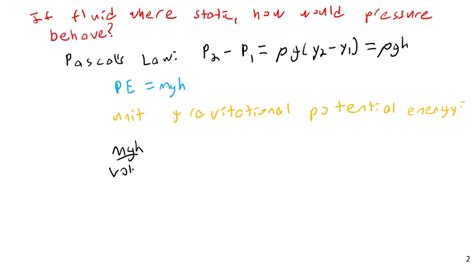 If fluid where static, how would pressure
behave?
Pascal's Law: P₂ - P₁ = ρg(y₂ - y₁) = ρgh
PE = mgh
unit gravitational potential energy:
mgh
vol
2